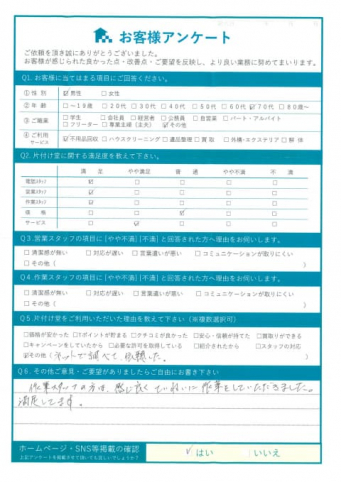 お客様アンケート
ご依頼を頂き誠にありがとうございました。
お客様が感じられた良かった点・改善点・ご要望を反映し、より良い業務に努めてまいります。
Q1. お客様に当てはまる項目にご回答ください。
①性別 ☑男性 □女性
②年齢 □~19歳 □20代 □30代 □40代 □50代 □60代 ☑70代 □80歳~
③ご職業 □学生 □会社員 □経営者 □公務員 □自営業 □パート・アルバイト
□フリーター □専業主婦(主夫) ☑その他
④ご利用サービス ☑不用品回収 □ハウスクリーニング □遺品整理 □買取 □外構・エクステリア □解体
Q2. 片付け堂に関する満足度を教えて下さい。
満足 やや満足 普通 やや不満 不満
電話スタッフ ☑ □ □ □ □
営業スタッフ ☑ □ □ □ □
作業スタッフ ☑ □ □ □ □
価格 □ □ ☑ □ □
サービス □ ☑ □ □ □
Q3. 営業スタッフの項目に[やや不満][不満]と回答された方へ理由をお伺いします。
□清潔感が無い □対応が遅い □言葉遣いが悪い □コミュニケーションが取りにくい
□その他( )
Q4. 作業スタッフの項目に[やや不満][不満]と回答された方へ理由をお伺いします。
□清潔感が無い □対応が遅い □言葉遣いが悪い □コミュニケーションが取りにくい
□その他( )
Q5. 片付け堂をご利用いただいた理由を教えて下さい(※複数選択可)
□価格が安かった □Tポイントが貯まる □クチコミが良かった □安心・信頼が持てた □買取りができる
□キャンペーンをしていたから □必要な許可を取得している □紹介されたから □スタッフの対応
☑その他( ネットで調べて依頼した。 )
Q6. その他ご意見・ご要望がありましたらご自由にお書き下さい
作業スタッフの方は、感じ良くていねいに作業をしていただきました。
満足してます。
ホームページ・SNS等掲載の確認
上記アンケートを掲載させて頂いても宜しいでしょうか?
✓はい いいえ